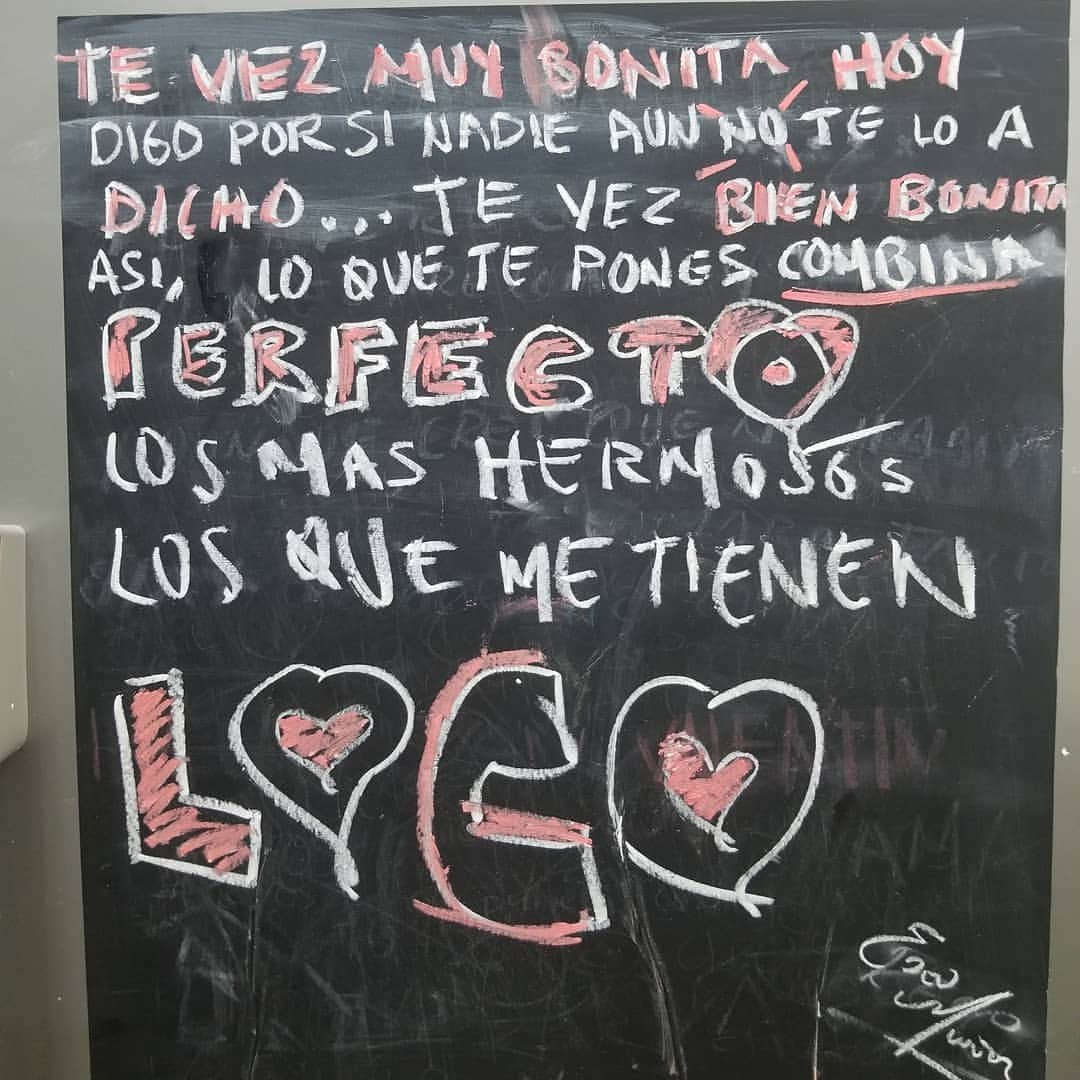 TE VEZ MUY BONITA HOY
DIGO POR SI NADIE AUN NO TE LO A
DICHO... TE VEZ BIEN BONITA
ASI, LO QUE TE PONES COMBINA
PERFECTO
LOS MAS HERMOSOS
LOS QUE ME TIENEN
LOCO